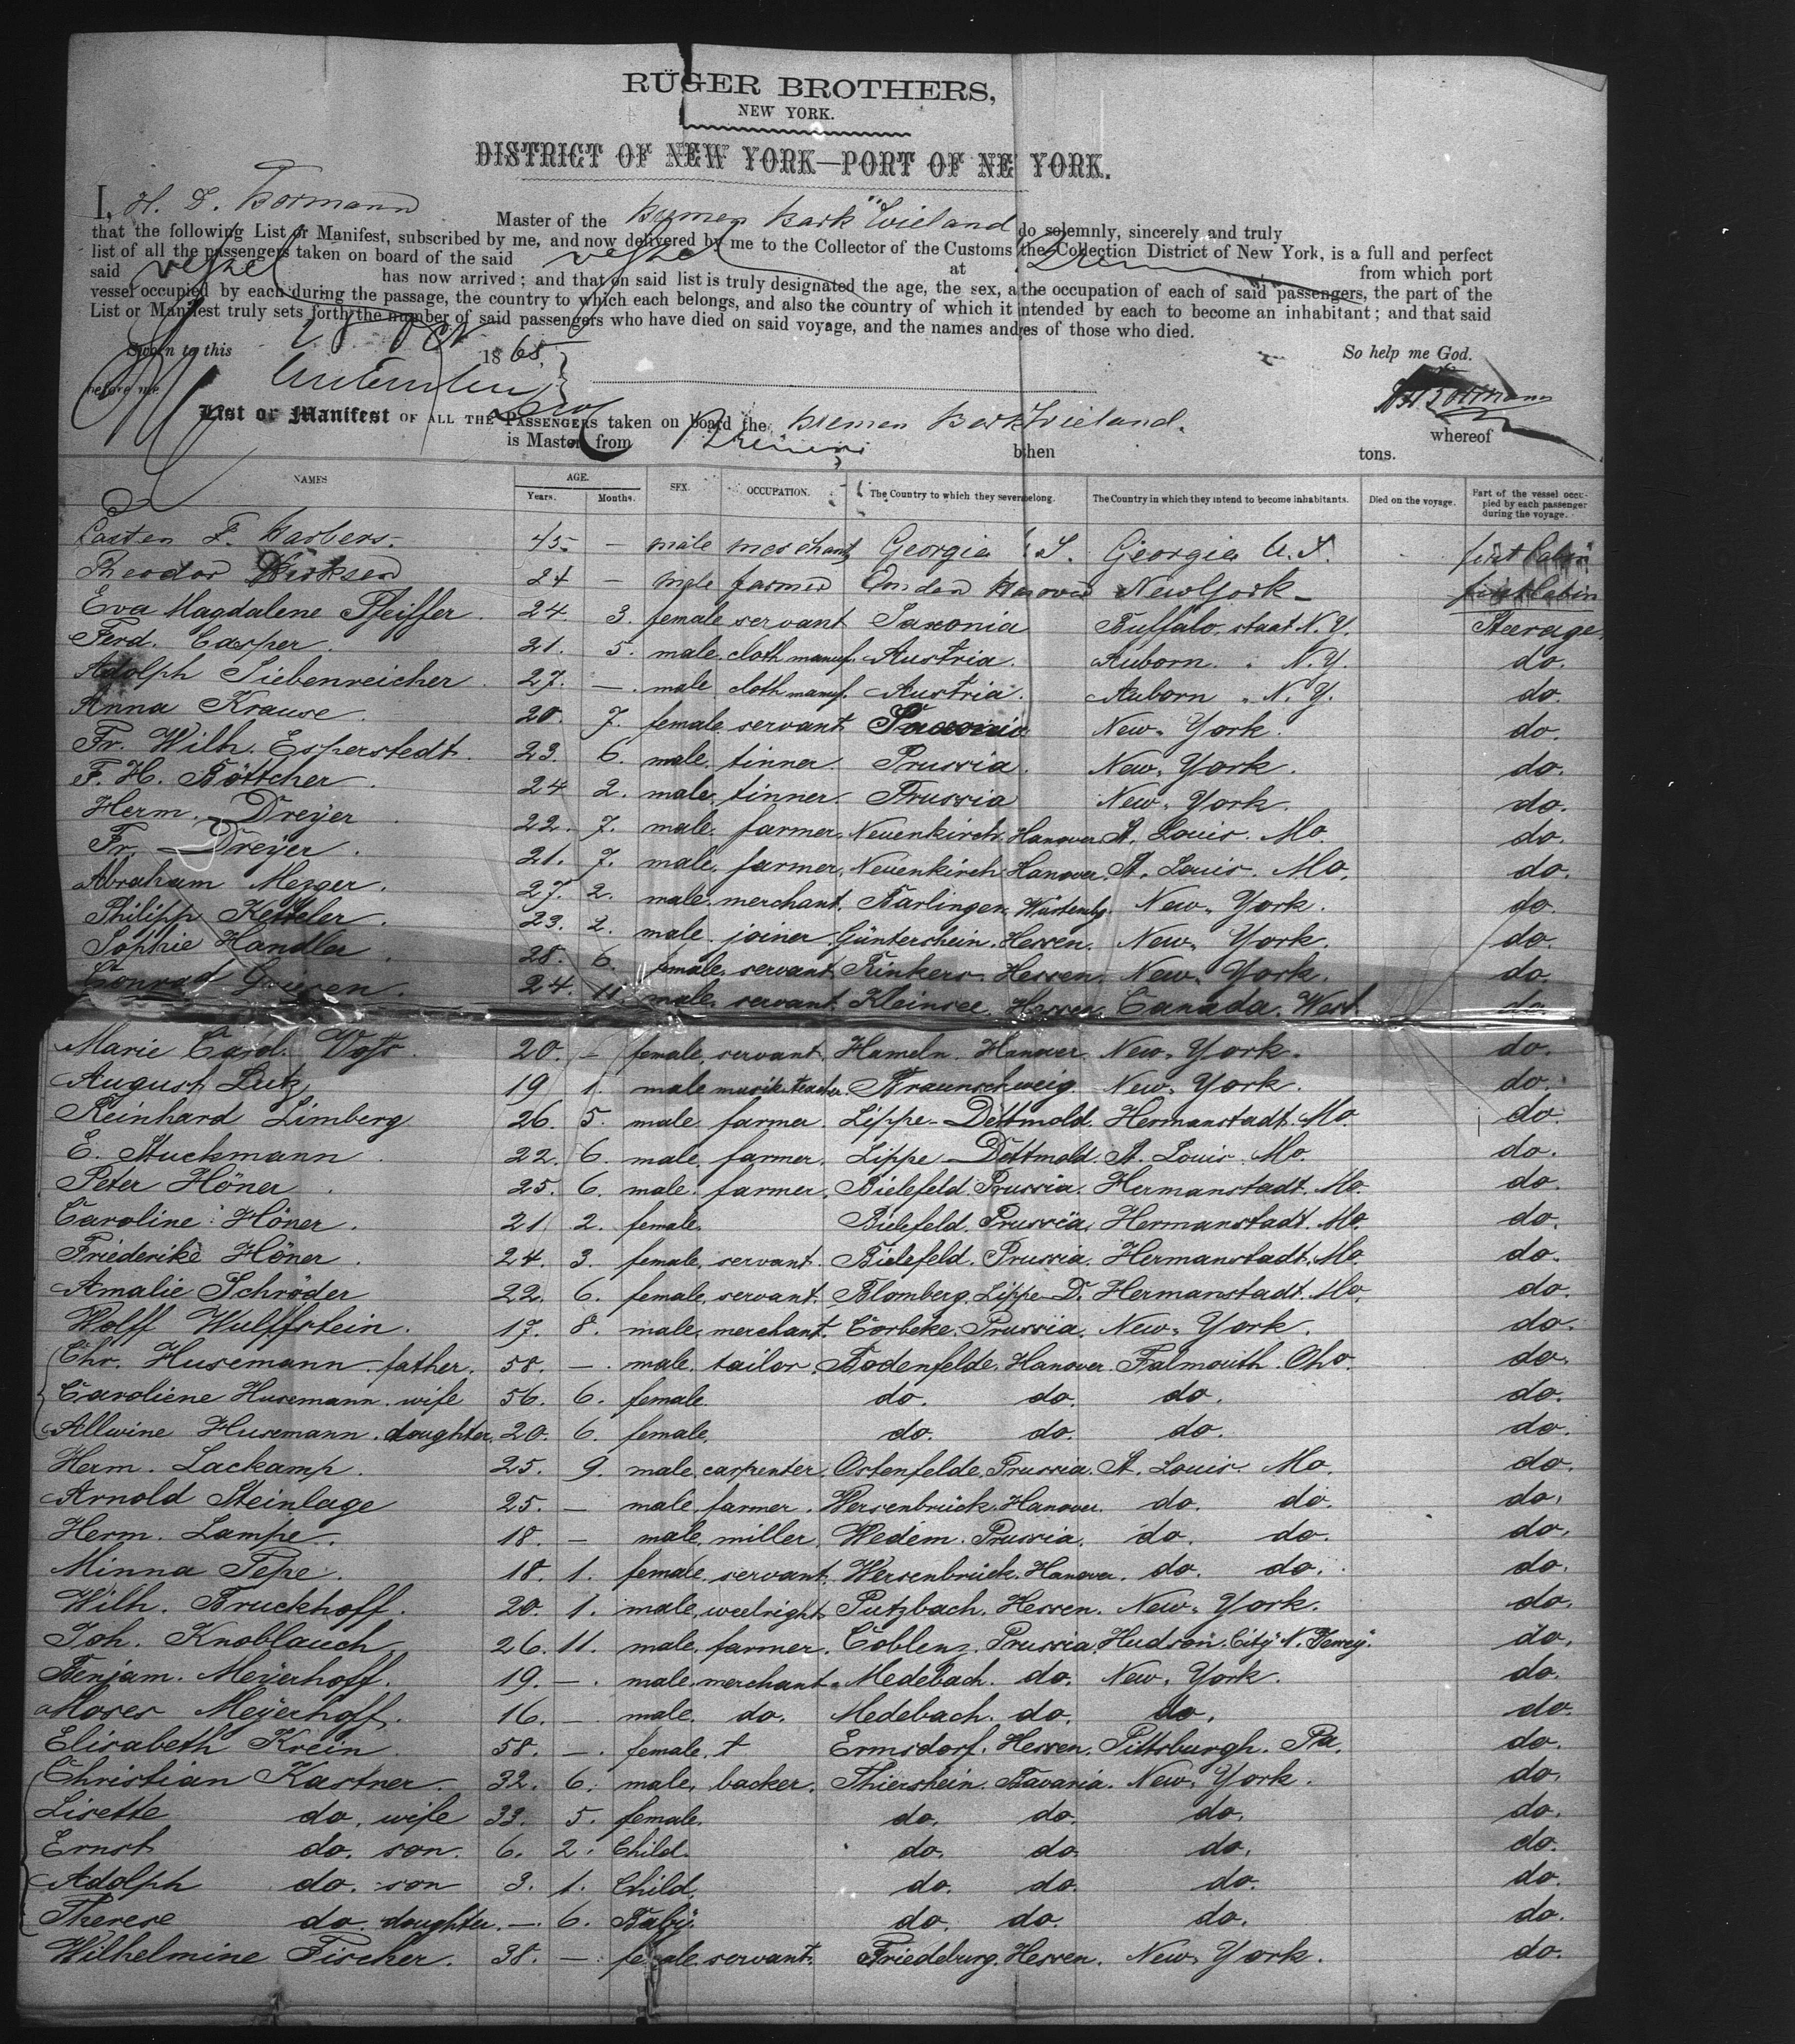 RÜGER BROTHERS,
NEW YORK.
DISTRICT OF NEW YORK—PORT OF NE YORK.
I, H. D. Bormann Master of the Bremen Bark "Wieland do solemnly, sincerely and truly
that the following List or Manifest, subscribed by me, and now delivered by me to the Collector of the Customs the Collection District of New York, is a full and perfect
list of all the passengers taken on board of the said vessel at Bremen from which port
said vessel has now arrived; and that on said list is truly designated the age, the sex, a the occupation of each of said passengers, the part of the
vessel occupied by each during the passage, the country to which each belongs, and also the country of which it intended by each to become an inhabitant; and that said
List or Manifest truly sets forth the number of said passengers who have died on said voyage, and the names and es of those who died.
Sworn to this 1865 So help me God.
before me
List or Manifest OF ALL THE PASSENGERS taken on board the Bremen Bark Wieland. whereof
is Master from Bremen b then tons.
NAMES AGE. Years. Months. SEX. OCCUPATION. The Country to which they sever elong. The Country in which they intend to become inhabitants. Died on the voyage. Part of the vessel occupied by each passenger during the voyage.
Casten F. Barbers. 45 — male merchant Georgia U.S. Georgia U.S. first Cabin
Theodor Dirksen 24 — male farmer Emden Hanover New York first Cabin
Eva Magdalene Pfeiffer. 24. 3. female servant Saxonia Buffalo, staat N.Y. Steerage
Ferd. Casper. 21. 5. male. cloth manuf. Austria. Auborn. " N.Y. do.
Adolph Siebenreicher. 27. —. male cloth manuf. Austria. Auborn " N.Y. do.
Anna Krause. 20. 7. female servant Saxonia New York. do.
Fr. Wilh. Esperstedt. 23. 6. male. tinner. Prussia. New York. do.
F. H. Böttcher. 24 2. male. tinner. Prussia New York. do.
Herm. Dreÿer. 22. 7. male. farmer. Neuenkirch. Hanover St. Louis. Mo. do.
Fr. Dreÿer. 21. 7. male. farmer. Neuenkirch Hanover. St. Louis. Mo. do.
Abraham Mezger. 27. 2. male. merchant. Würtembg. New York. do.
Philipp Ketteler. 23. 2. male. joiner. Hessen. New York. do.
Sophie Handler. 28. 6. female. servant. Hessen. New York. do.
Conrad 24. 11. male. servant. Kleinsee Hessen Canada. West. do.
Marie Carol. Voss. 20. — female. servant. Hameln. Hanover. New York. do.
August Lutz 19 1. male musik teacher. Braunschweig. New York. do.
Reinhard Limberg 26. 5. male. farmer. Lippe-Dettmold. Hermanstadt. Mo. do.
E. Stuckmann. 22. 6. male. farmer. Lippe-Dettmold. St. Louis. Mo. do.
Peter Höner. 25. 6. male. farmer. Bielefeld. Prussia. Hermanstadt. Mo. do.
Caroline Höner. 21 2. female. Bielefeld. Prussia. Hermanstadt. Mo. do.
Friederike Höner. 24. 3. female. servant. Bielefeld. Prussia. Hermanstadt. Mo. do.
Amalie Schröder 22. 6. female. servant. Blomberg. Lippe-D. Hermanstadt. Mo. do.
Wolff Wulffstein. 17. 8. male. merchant. Corbeke. Prussia. New York. do.
Chr. Husemann. father. 58. —. male. tailor. Bodenfelde. Hanover. Falmouth. Oho. do.
Caroliene Husemann. wife 56. 6. female. do. do. do. do.
Allwine Husemann. doughter. 20. 6. female. do. do. do. do.
Herm. Lackamp. 25. 9. male. carpenter. Ostenfelde. Prussia. St. Louis. Mo. do.
Arnold Steinlage 25. — male. farmer. Bersenbrück. Hanover. do. do. do.
Herm. Lampe. 18. — male. miller. Wedem. Prussia. do. do. do.
Minna Tepe. 18. 1. female. servant. Bersenbrück. Hanover. do. do. do.
Wilh. Bruckhoff. 20. 1. male. weelright. Putzbach. Hessen. New York. do.
Joh. Knoblauch 26. 11. male. farmer. Coblenz. Prussia. Hudson City N. Jersey. do.
Benjam. Meÿerhoff. 19. —. male. merchant. Medebach. do. New York. do.
Moses Meÿerhoff. 16. — male. do. Medebach. do. do. do.
Elisabeth Krein. 58. —. female. t Ermsdorf. Hessen. Pittsburgh. Pa. do.
Christian Kastner. 32. 6. male. backer. Thiershein. Bavaria. New York. do.
Lisette do. wife 33. 5. female. do. do. do. do.
Ernst do. son. 6. 2. Child. do. do. do. do.
Adolph do. son 3. 1. Child. do. do. do. do.
Therese do. doughter. —. 6. Babÿ. do. do. do. do.
Wilhelmine Fischer. 38. —. female. servant. Friedeburg. Hessen. New York. do.